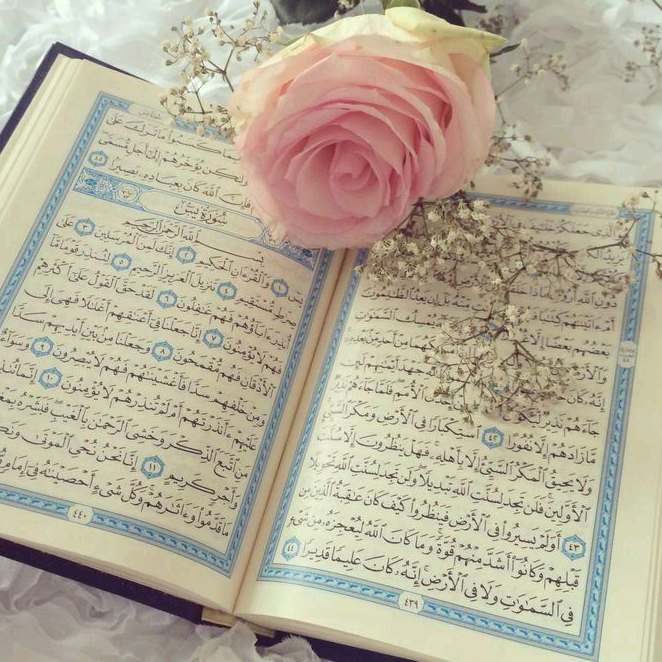 دُونِ ٱللَّهِ أَرُونِي مَاذَا
أَمۡ ءَاتَيۡنَٰهُمۡ كِتَٰبٗا مِّنۡهُۚ بَلۡ إِن يَعِدُ ٱلظَّٰلِمُونَ
بَعۡضُهُم بَعۡضًا إِلَّا يُمۡسِكُ ٱلسَّمَٰوَٰتِ
وَٱلۡأَرۡضَ أَمۡسَكَهُمَا مِنۡ أَحَدٖ مِّنۢ بَعۡدِهِۦٓۚ
إِنَّهُۥ كَانَ جَهۡدَ أَيۡمَٰنِهِمۡ لَئِن
جَآءَهُمۡ نَذِيرٞ لَّيَكُونُنَّ ٱلۡأُمَمِۖ فَلَمَّا جَآءَهُمۡ نَذِيرٞ
مَّا زَادَهُمۡ إِلَّا نُفُورًا ٤٢ ٱسۡتِكۡبَارٗا فِي ٱلۡأَرۡضِ وَمَكۡرَ ٱلسَّيِّيِٕۚ
وَلَا يَحِيقُ ٱلۡمَكۡرُ ٱلسَّيِّئُ إِلَّا بِأَهۡلِهِۦۚ فَهَلۡ يَنظُرُونَ إِلَّا سُنَّتَ
ٱلۡأَوَّلِينَۚ فَلَن تَجِدَ لِسُنَّتِ ٱللَّهِ تَبۡدِيلٗاۖ وَلَن تَجِدَ لِسُنَّتِ ٱللَّهِ تَحۡوِيلًا
٤٣ أَوَلَمۡ يَسِيرُواْ فِي ٱلۡأَرۡضِ فَيَنظُرُواْ كَيۡفَ كَانَ عَٰقِبَةُ ٱلَّذِينَ مِن
قَبۡلِهِمۡ وَكَانُوٓاْ أَشَدَّ مِنۡهُمۡ قُوَّةٗۚ وَمَا كَانَ ٱللَّهُ لِيُعۡجِزَهُۥ مِن شَيۡءٖ
فِي ٱلسَّمَٰوَٰتِ وَلَا فِي ٱلۡأَرۡضِۚ إِنَّهُۥ كَانَ عَلِيمٗا قَدِيرٗا ٤٤
٤٣٩
بِمَا كَسَبُواْ مَا تَرَكَ عَلَىٰ
وَلَٰكِن يُؤَخِّرُهُمۡ إِلَىٰٓ أَجَلٖ مُّسَمّٗىۖ
فَإِنَّ ٱللَّهَ كَانَ بِعِبَادِهِۦ بَصِيرَۢا ٤٥
سُورَةُ يسٓ
بِسۡمِ ٱللَّهِ ٱلرَّحۡمَٰنِ ٱلرَّحِيمِ
يسٓ ١ وَٱلۡقُرۡءَانِ ٱلۡحَكِيمِ ٢ إِنَّكَ لَمِنَ ٱلۡمُرۡسَلِينَ ٣ عَلَىٰ
صِرَٰطٖ مُّسۡتَقِيمٖ ٤ تَنزِيلَ ٱلۡعَزِيزِ ٱلرَّحِيمِ ٥ لِتُنذِرَ قَوۡمٗا مَّآ
أُنذِرَ ءَابَآؤُهُمۡ فَهُمۡ غَٰفِلُونَ ٦ لَقَدۡ حَقَّ ٱلۡقَوۡلُ عَلَىٰٓ أَكۡثَرِهِمۡ
فَهُمۡ لَا يُؤۡمِنُونَ ٧ إِنَّا جَعَلۡنَا فِيٓ أَعۡنَٰقِهِمۡ أَغۡلَٰلٗا فَهِيَ إِلَى
ٱلۡأَذۡقَانِ فَهُم مُّقۡمَحُونَ ٨ وَجَعَلۡنَا مِنۢ بَيۡنِ أَيۡدِيهِمۡ سَدّٗا
وَمِنۡ خَلۡفِهِمۡ سَدّٗا فَأَغۡشَيۡنَٰهُمۡ فَهُمۡ لَا يُبۡصِرُونَ ٩ وَسَوَآءٌ
عَلَيۡهِمۡ ءَأَنذَرۡتَهُمۡ أَمۡ لَمۡ تُنذِرۡهُمۡ لَا يُؤۡمِنُونَ ١٠ إِنَّمَا تُنذِرُ
مَنِ ٱتَّبَعَ ٱلذِّكۡرَ وَخَشِيَ ٱلرَّحۡمَٰنَ بِٱلۡغَيۡبِۖ فَبَشِّرۡهُ بِمَغۡفِرَةٖ
وَأَجۡرٖ كَرِيمٍ ١١ إِنَّا نَحۡنُ نُحۡيِ ٱلۡمَوۡتَىٰ وَنَكۡتُبُ
مَا قَدَّمُواْ وَءَاثَٰرَهُمۡۚ وَكُلَّ شَيۡءٍ أَحۡصَيۡنَٰهُ فِيٓ إِمَامٖ
٤٤٠